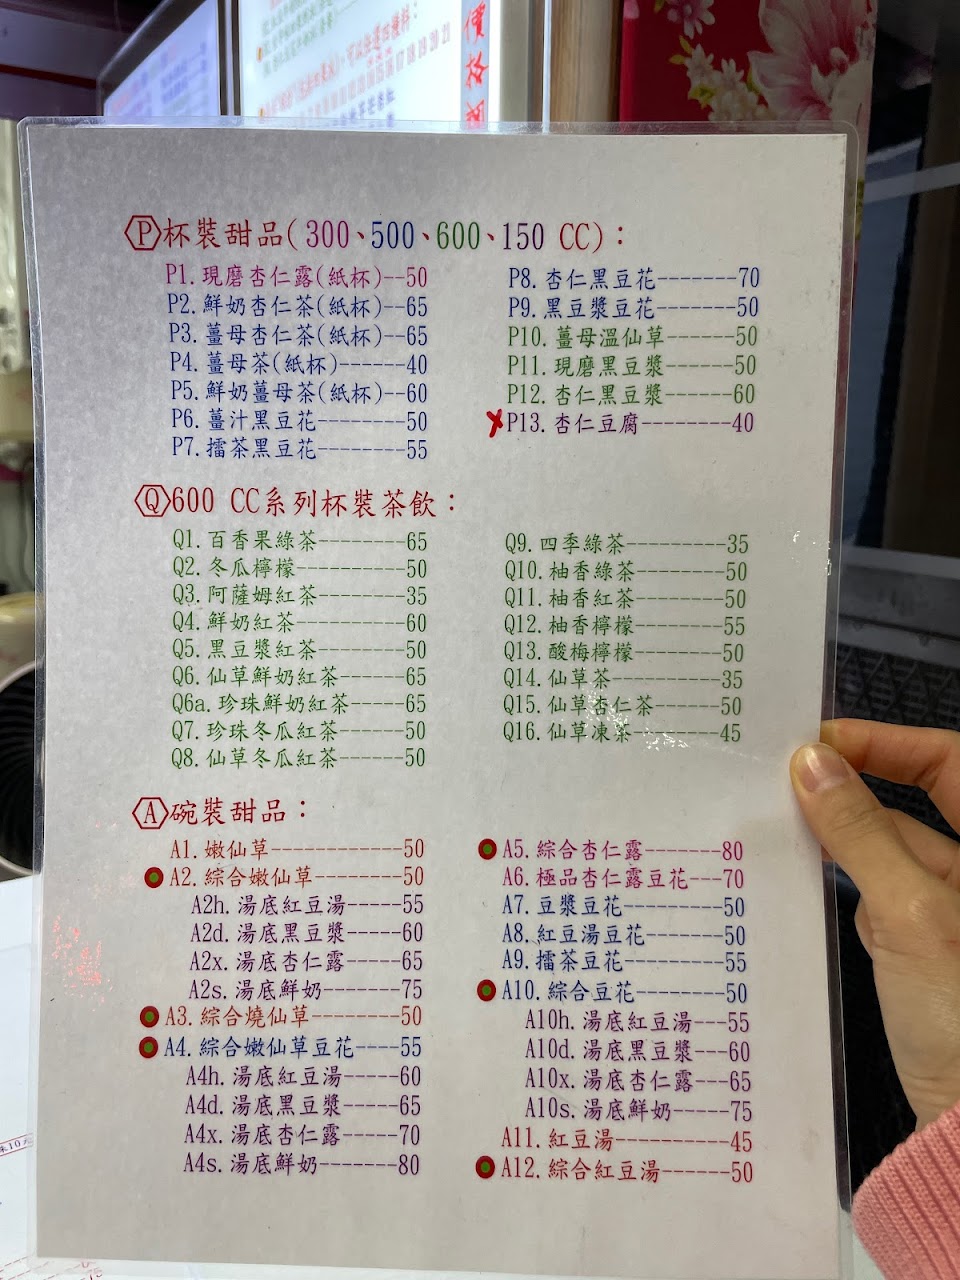 價格調
17 18 19 20 21
Ⓟ杯裝甜品(300、500、600、150 CC)：
P1.現磨杏仁露(紙杯)--50
P2.鮮奶杏仁茶(紙杯)--65
P3.薑母杏仁茶(紙杯)--65
P4.薑母茶(紙杯)------40
P5.鮮奶薑母茶(紙杯)--60
P6.薑汁黑豆花--------50
P7.擂茶黑豆花--------55
P8.杏仁黑豆花-------70
P9.黑豆漿豆花-------50
P10.薑母溫仙草------50
P11.現磨黑豆漿------50
P12.杏仁黑豆漿------60
P13.杏仁豆腐--------40
Ⓠ600 CC系列杯裝茶飲：
Q1.百香果綠茶--------65
Q2.冬瓜檸檬----------50
Q3.阿薩姆紅茶--------35
Q4.鮮奶紅茶----------60
Q5.黑豆漿紅茶--------50
Q6.仙草鮮奶紅茶------65
Q6a.珍珠鮮奶紅茶-----65
Q7.珍珠冬瓜紅茶------50
Q8.仙草冬瓜紅茶------50
Q9.四季綠茶---------35
Q10.柚香綠茶--------50
Q11.柚香紅茶--------50
Q12.柚香檸檬--------55
Q13.酸梅檸檬--------50
Q14.仙草茶----------35
Q15.仙草杏仁茶------50
Q16.仙草凍茶--------45
Ⓐ碗裝甜品：
A1.嫩仙草------------50
A2.綜合嫩仙草--------50
A2h.湯底紅豆湯-----55
A2d.湯底黑豆漿-----60
A2x.湯底杏仁露-----65
A2s.湯底鮮奶-------75
A3.綜合燒仙草--------50
A4.綜合嫩仙草豆花----55
A4h.湯底紅豆湯-----60
A4d.湯底黑豆漿-----65
A4x.湯底杏仁露-----70
A4s.湯底鮮奶-------80
A5.綜合杏仁露-------80
A6.極品杏仁露豆花---70
A7.豆漿豆花---------50
A8.紅豆湯豆花-------50
A9.擂茶豆花---------55
A10.綜合豆花--------50
A10h.湯底紅豆湯---55
A10d.湯底黑豆漿---60
A10x.湯底杏仁露---65
A10s.湯底鮮奶-----75
A11.紅豆湯----------45
A12.綜合紅豆湯------50